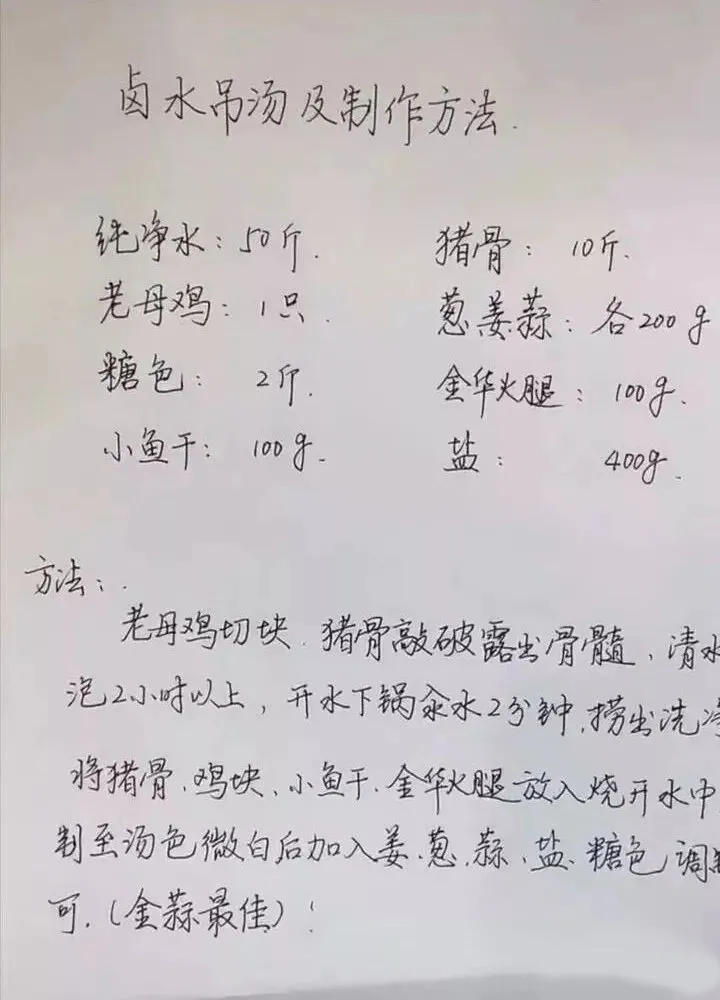 卤水吊汤及制作方法.
纯净水：50斤. 猪骨：10斤.
老母鸡：1只. 葱姜蒜：各200g
糖色：2斤. 金华火腿：100g.
小鱼干：100g. 盐：400g.
方法：.
老母鸡切块.猪骨敲破露出骨髓、清水
泡2小时以上，开水下锅汆水2分钟.捞出洗净
将猪骨、鸡块、小鱼干、金华火腿放入烧开水中
制至汤色微白后加入姜、葱、蒜、盐、糖色调
可.（金蒜最佳）！